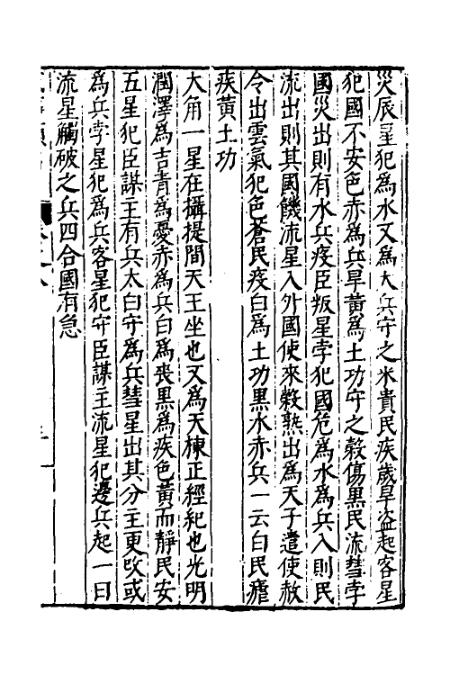 災辰星犯為水又為大兵守之米貴民疾歲旱盜起客星
犯國不安色赤為兵旱黃為土功守之穀傷黑民流彗孛
國災出則有水兵疫臣叛星孛犯國危為水為兵入則民
流出則其國饑流星入外國使來穀熟出為天子遣使赦
令出雲氣犯色蒼民疫白為土功黑水赤兵一云白民疾
疾黃土功
大角一星在攝提間天王坐也又為天棟正經紀也光明
潤澤為吉青為憂赤為兵白為喪黑為疾色黃而靜民安
五星犯臣謀主有兵太白守為兵彗星出其分主更改或
為兵孛星犯為兵客星犯守臣謀主流星犯邊兵起一曰
流星觸破之兵四合國有急